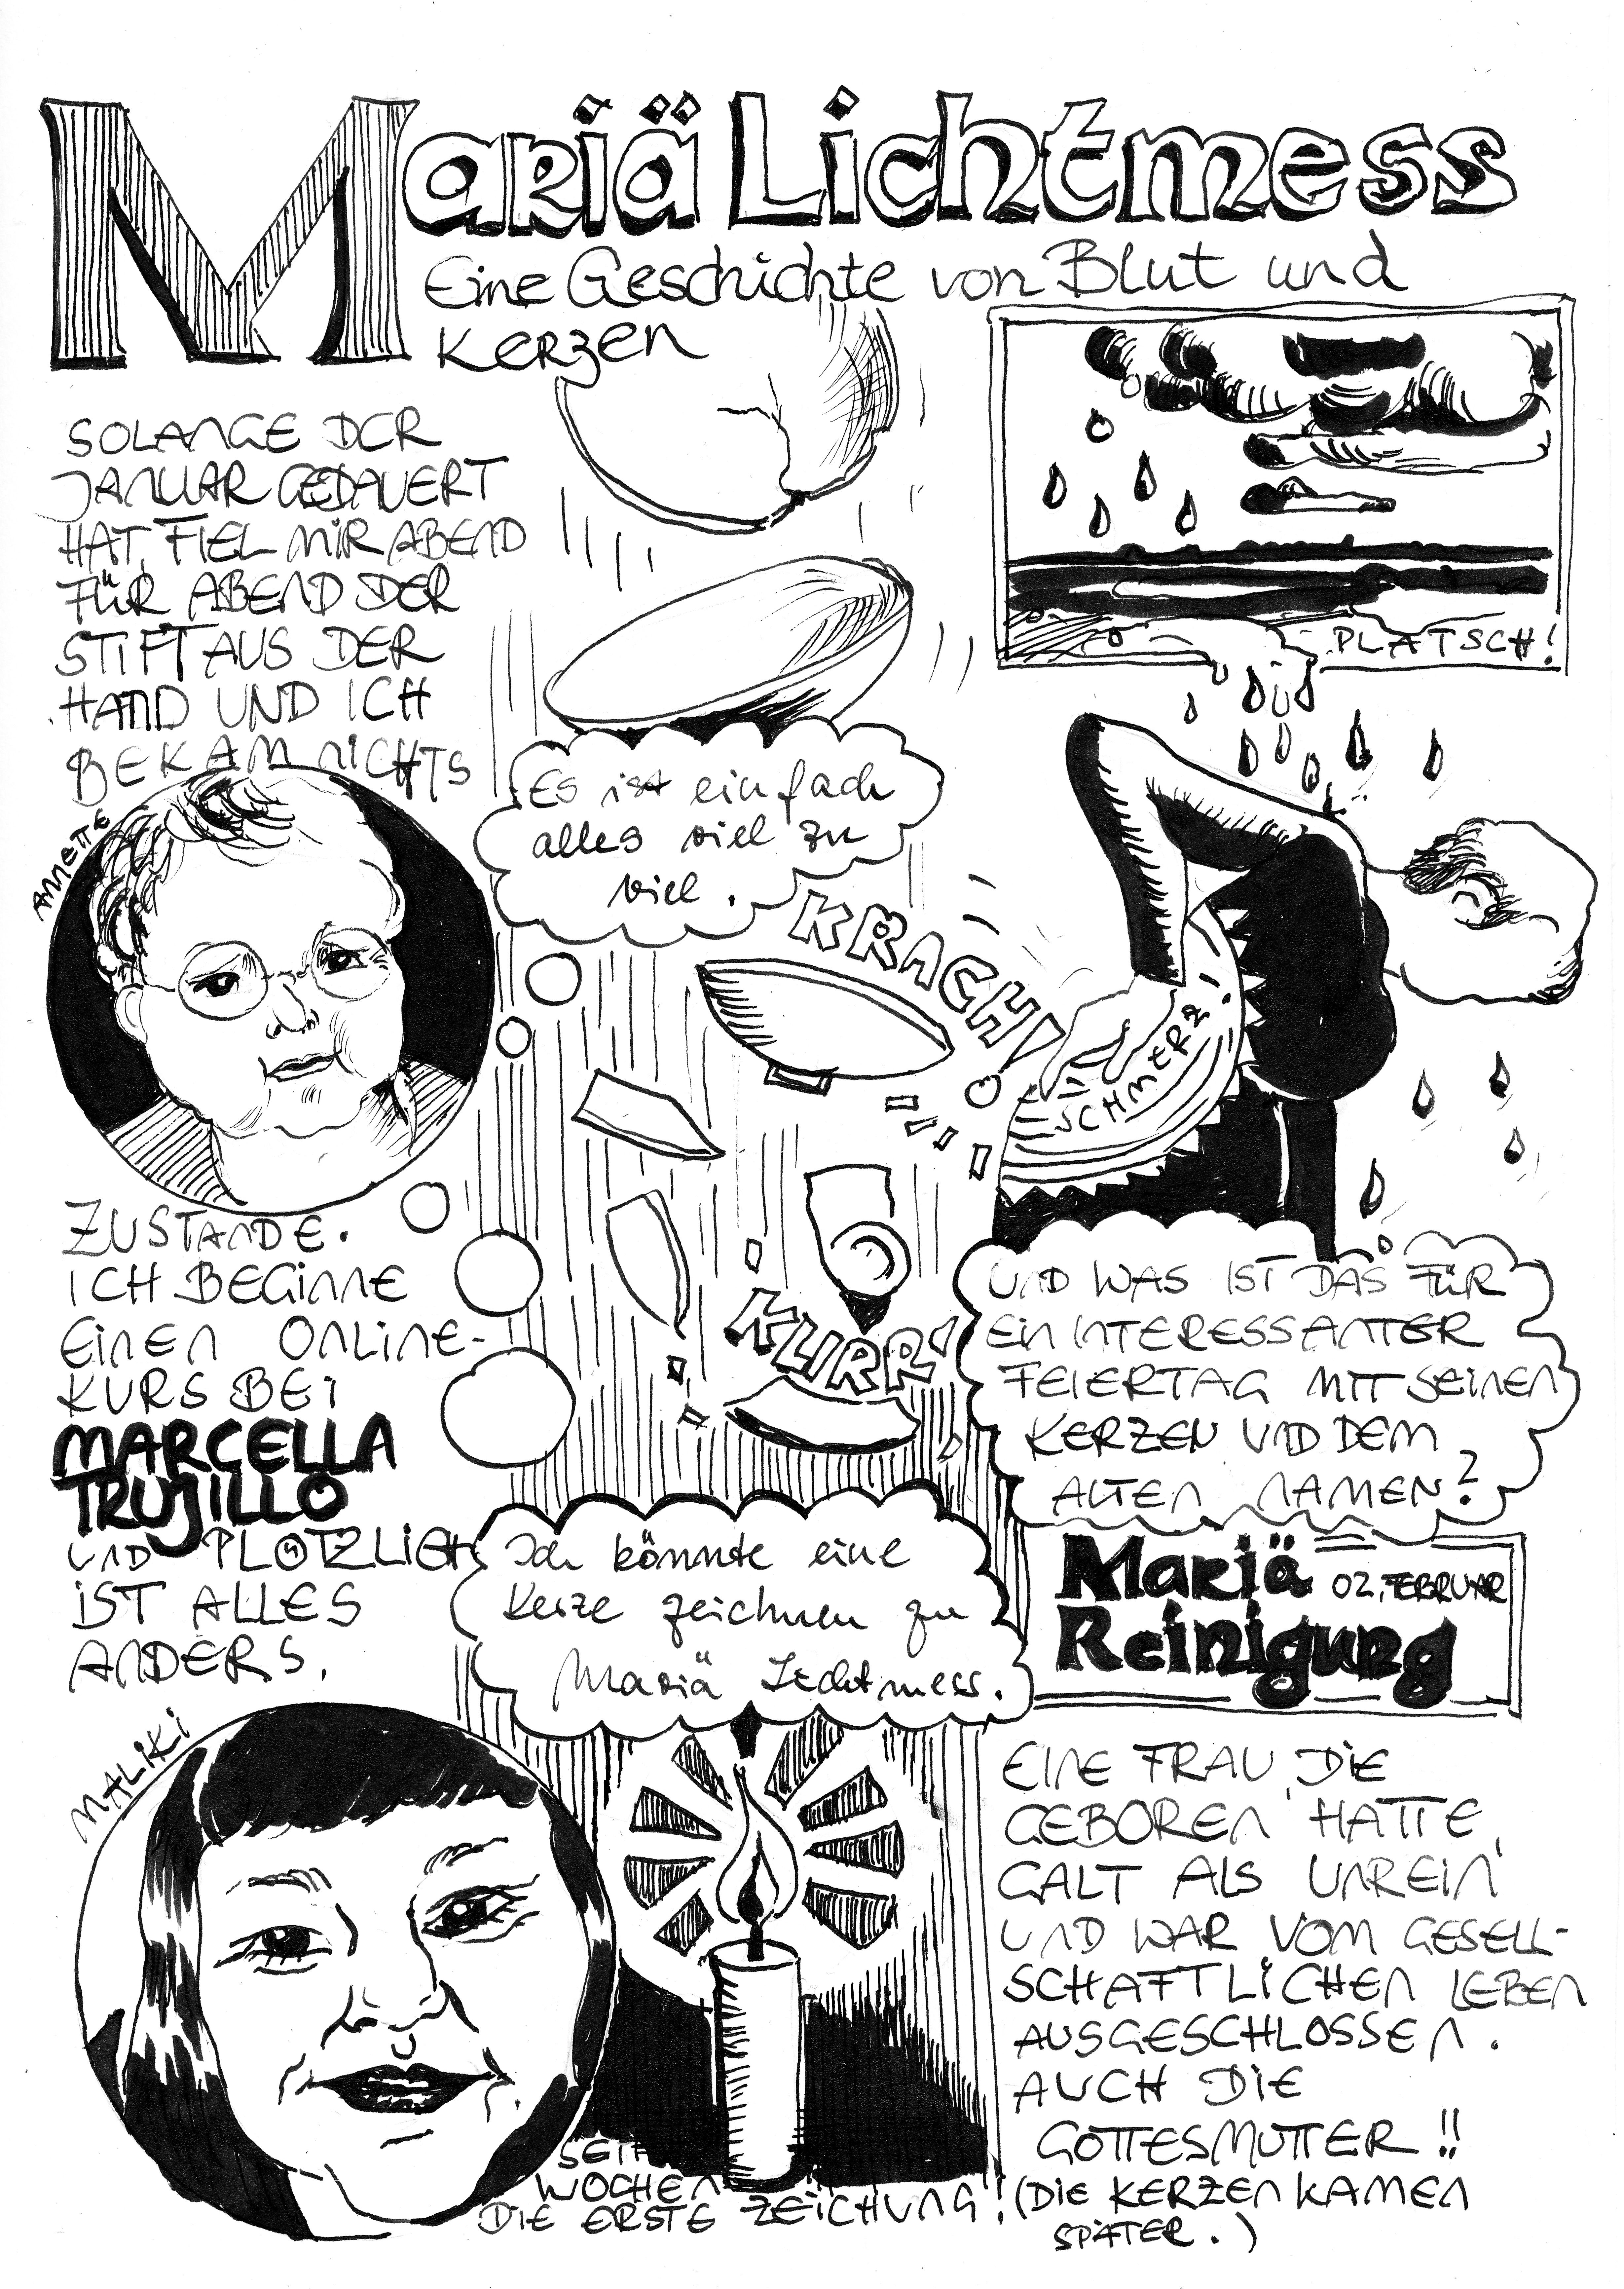 Mariä Lichtmess
Eine Geschichte von Blut und
Kerzen
SOLANGE DER
JANUAR GEDAUERT
HAT, FIEL MIR ABEND
FÜR ABEND DER
STIFT AUS DER
HAND UND ICH
BEKAM NICHTS
ANNETTE
ZUSTANDE.
ICH BEGINNE
EINEN ONLINE-
KURS BEI
MARCELLA
TRUJILLO
UND PLÖTZLICH
IST ALLES
ANDERS.
MALIKI
Es ist einfach
alles viel zu
viel.
KRACH!
KLIRR!
Ich könnte eine
Kerze zeichnen zu
Mariä Lichtmess.
SEIT
WOCHEN
DIE ERSTE ZEICHUNG!
PLATSCH!
SCHMERZ!
UND WAS IST DAS FÜR
EIN INTERESSANTER
FEIERTAG MIT SEINEN
KERZEN UND DEM
ALTEN NAMEN?
Mariä 02. FEBRUAR
Reinigung
EINE FRAU, DIE
GEBOREN HATTE,
GALT ALS UNREIN
UND WAR VOM GESELL-
SCHAFTLICHEN LEBEN
AUSGESCHLOSSEN.
AUCH DIE
GOTTESMUTTER!!
(DIE KERZEN KAMEN
SPÄTER.)